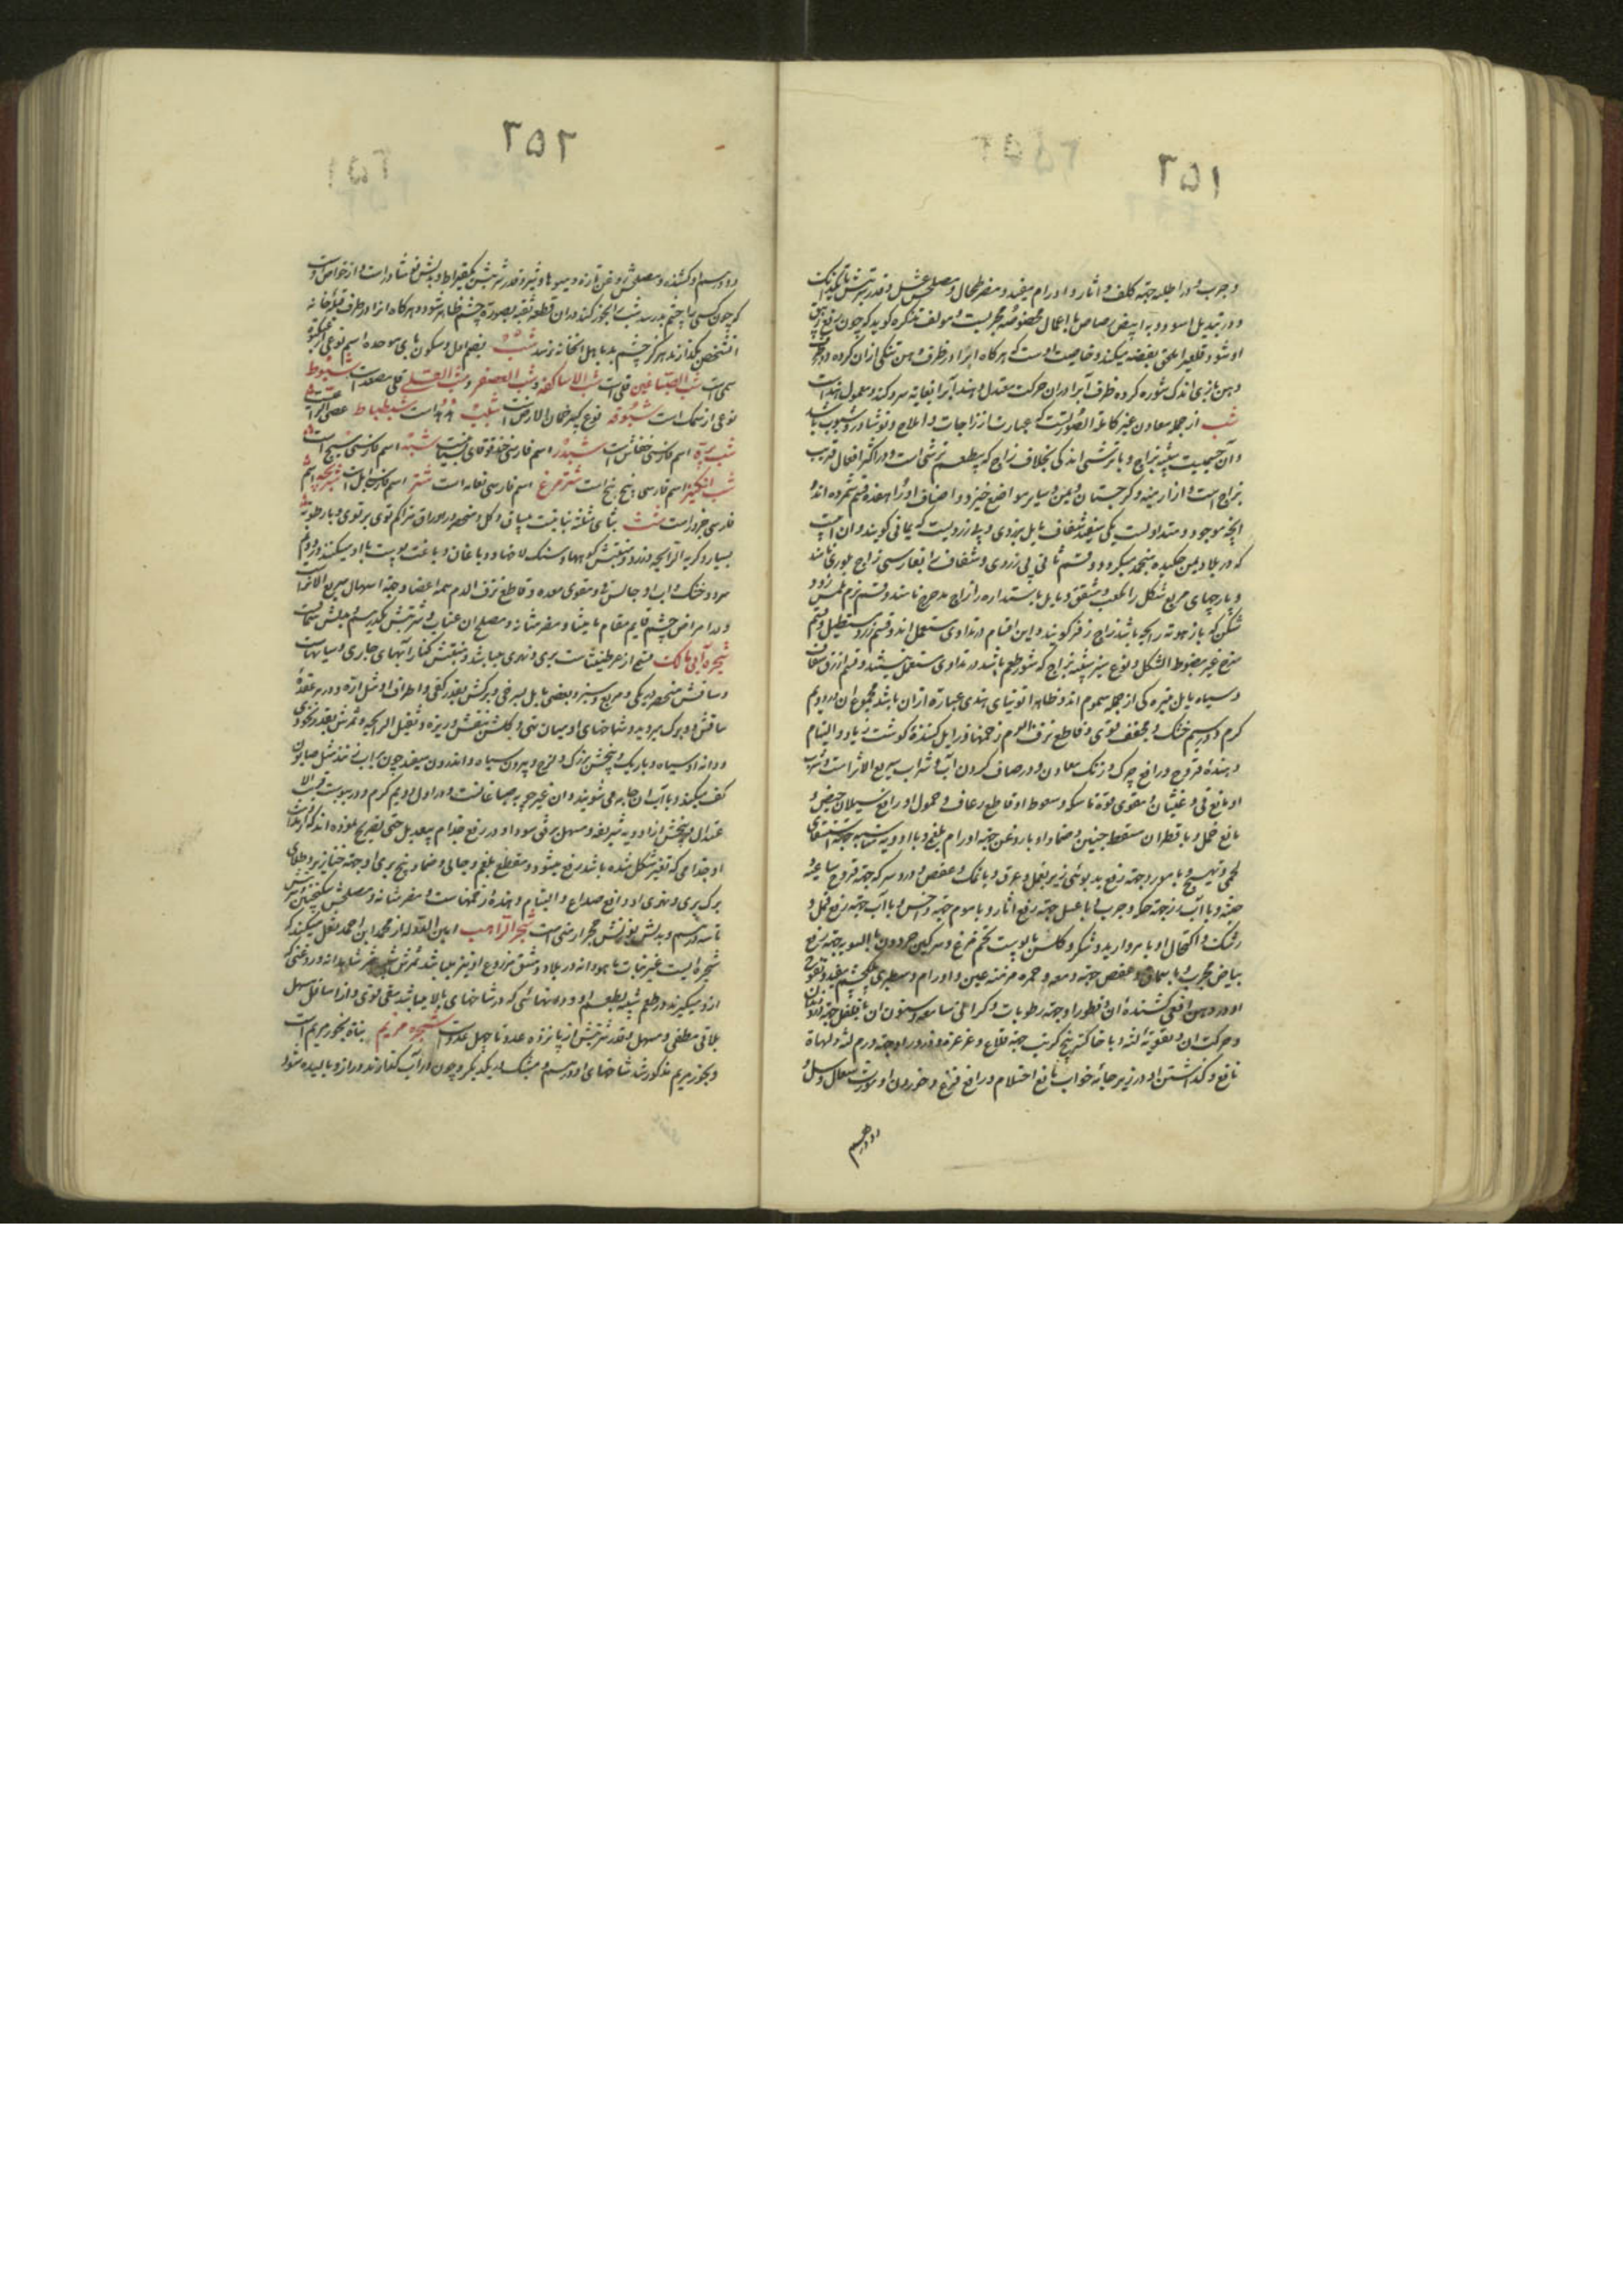 ٢٥١
وجرب و در اطلیه جهة کلف و آثار و اورام مفید و مضر طحال و مصلحش عسل و قدر شربتش تا یکدانک
و در تبدیل اسود به ابیض رصاص با اعمال مخصوصه مجربست و مولف تذکره گوید که چون
او شود و قلعی را ملحق بفضه میکند و خاصیت اوست که هر گاه ابر در ظرف دهن تنگی ازان کرده
و دهن بازی اندک شوره کرده ظرف آبرا دران حرکت معتدل دهند آبرا بغایة سرد کند و معمول هند است
شب از جمله معادن غیر کاملة الصورتست که عبارتست از زاجات و املاح و نوشادر و شبوب باشد
و آن جسمیست شبیه بزاج و با ترشی اندکی بخلاف زاج که بیطعم ترشی است و در اکثر افعال قریب
بزاج است و از ارمنیه و کرجستان و یمن و سایر مواضع خیزد و اصناف او را هفده قسم شمرده اند و
آنچه موجود و متداولست یکی سفید شفاف مایل بزردی و براق و زردیست که یمانی گویند و ان
که در بلاد یمن چکیده منجمد میگردد و قسم ثانی بی زردی و شفاف و بفارسی زاج بلوری نامند
و پارچهای مربع شکل را مکعب و مشقق و مایل باستداره را زاج مدحرج نامند و قسم نرم املس زود
شکن که بازهومة رایحه باشد زاج زفر گویند و این اقسام در تداوی مستعمل اند و قسم زرد مستطیل و قسم
سرخ غیر مضبوط الشکل و نوع سبز شبیه بزاج که شور طعم باشد در تداوی مستعمل نیستند و قسم ازرق
و سیاه مایل بتیره کی از جمله سموم اند و ظاهرا توتیای هندی عبارة ازان باشد مجموع ان در دویم
گرم و در سیم خشک و مجفف قوی و قاطع نزف الدم زخمها و زایل کننده گوشت زیاد و التیام
دهنده قروح و رافع چرک و زنک معادن و در صاف کردن آب و شراب سریع الاثر است و شرب
او مانع قی و غثیان و مقوی قوة ماسکه و سعوط او قاطع رعاف و حمول او رافع سیلان حیض و
مانع حمل و با قطران مسقط جنین و ضماد او با روغن جهة اورام بلغمی و با ادویه مناسبه جهة استسقای
لحمی و تهبج و با مورد جهة رفع بدبوئی زیر بغل و عرق و با نمک و عفص و درد سرکه جهة قروح ساعیه
عفنه و با آب رز جهة حکه و جرب و با عسل جهة رفع آثار و با موم جهة داخس و با آب جهة رفع قمل و
رشک و اکتحال او با مروارید و شکر و کلس با پوست تخم مرغ و سرکین حردون بالسویه جهة رفع
بیاض مجرب و با سماق و عفص جهة دمعه و حمره مزمنه عین و اورام و سطبری پلک چشم مفید
او در دهن افعی کشنده ان و قطور او جهة رطوبات و کرانی سامعه و سنون ان با فلفل جهة درد دندان
و حرکت ان و تقویة لثه و با خاکستر بیخ کرنب جهة قلاع و غرغره و ذرور او جهة ورم لثه و لهاة
نافع و گذاشتن او در زیر جامه خواب مانع احتلام و رافع فزع و خوردن او مورث سعال و سل و
دو درهم
٢٥٢
دو درهم او کشنده و مصلحش روغن تازه و میوها و شیر و قدر شربتش یکقیراط و بدلش نوشادر است و از خواص اوست
که چون کسی را چشم بد رسد شب را بخور کنند دران قطعه ثقبه بصورة چشم ظاهر شود و هر کاه انرا در طرف قبله خانه
آنشخص بگذارند هرگز چشم بد باهل آنخانه نرسد شبث بضم اول و سکون بای موحده اسم نوعی عنکبوت
سمی است شب الصباغین قلی است شب الاساکفه و شب العصفر و شب القلی قلی مصعد است شبوط
نوعی از سمک است شبوقه نوع کبیر خمان الارض است شبیب هدهد است شبطباط عصی الراعی است
شب پره اسم فارسی خفاش است شبدر اسم فارسی حندقوقای بستانیست شبه اسم فارسی سبج است
شب انگیز اسم فارسی بنج بنج است شتر مرغ اسم فارسی نعامه است شتر اسم فارسی ابل است
فارسی خرد است شث بثای مثلثه نباتیست بیساق و گل و منحصر در اوراق متراکم توی بر توی و با رطوبة
بسیار و کریه الرایحه و زرد و منبتش کوهها و سنگ لاخها و دباغان دباغت پوست با او میکنند و در دویم
سرد و خشک و اب او جالس و مقوی معده و قاطع نزف الدم همه اعضا و جهة اسهال سریع الاثر است
و در امراض چشم قایم مقام مامیثا و مضر مثانه و مصلح ان عناب و شربتش یکدرهم و بدلش
شجره ابی مالک قسمی از عرطنیثاست بری و نهری میباشد و منبتش کنار آبهای جاری و سیاهست
و ساقش منحصر بیکی و مربع و سبز و بعضی مایل بسرخی و برگش بقدر کفی و اطراف او مثل اره و در هر عقده
ساقش دو برگ میروید و شاخهای او میان تهی و گلش بنفش و ریزه و ثقیل الرایحه و ثمرش بقدر نخودی
و دانه او سیاه و باریک و بیخش بزرگ و لزج و بیرون سیاه و اندرون سفید چون براب زنند مثل صابون
کف میکند و با آب ان جامه می شویند و ان غیر چوبه صباغانست و در اول دویم گرم و در یبوست قریب الا
عتدال و بیخش از ادویه شریفه و مسهل مرقی سودا و در رفع جذام بیعدیل حتی تصریح نموده اند که
او جذامی که تغیر شکل شده باشد رفع میشود و مقطع بلغم و جالی و ضماد بیخ بری او جهة خنازیر و طلای
برگ بری و نهری او رافع صداع و التیام دهنده زخمهاست و مضر مثانه و مصلحش سکنجبین و شربتش
تا سه درهم و بدلش بوزنش حجر ارمنی است شجر الراهب امین الدوله از محمد ابن احمد نقل میکند که
شجره ایست غیر نبات ماهودانه در بلاد دمشق مزروع او نیز میباشد ثمرش شبیه بثمر شاهدانه و روغنی که
ازو میگیرند در طعم شبیه بطعم او و دانهائی که در شاخهای بالا میباشد مقی قوی و از اسافل مسهل
بلاقی مطفی و مسهل و قدر شربتش از پانزده عدد تا چهل عدد است شجره مریم نباة بخور مریم است
و بخور مریم مذکور شد شاخهای او درهم و مشبک بیکدیگر و چون در آب گذارند دراز و بالیده شود